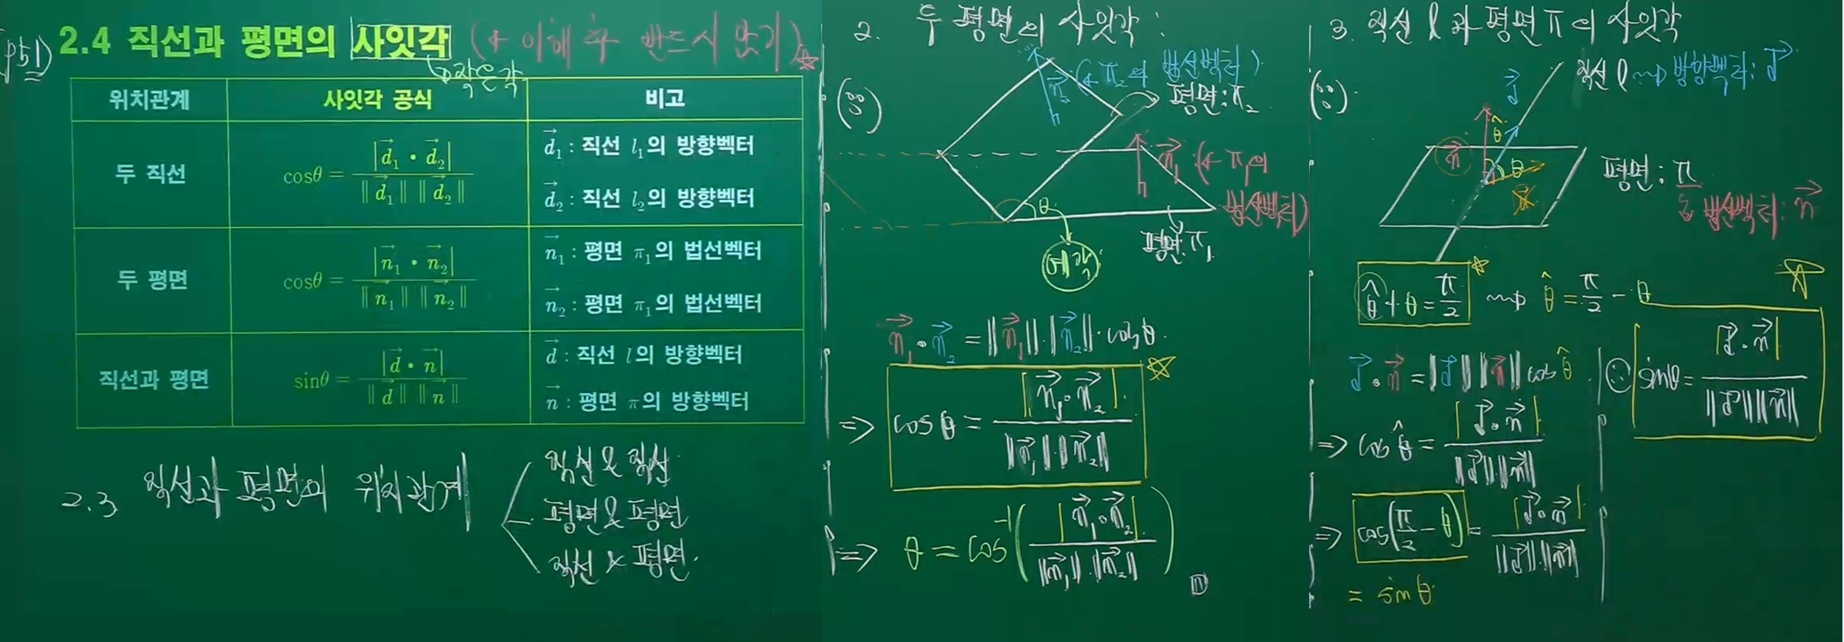 p51)
2.4 직선과 평면의 사잇각 (← 이해 후 반드시 암기)☆
↳ 작은각
위치관계 사잇각 공식 비고
두 직선 cosθ = |d⃗₁ • d⃗₂| / ‖d⃗₁‖ ‖d⃗₂‖
d⃗₁ : 직선 l₁의 방향벡터
d⃗₂ : 직선 l₂의 방향벡터
두 평면 cosθ = |n⃗₁ • n⃗₂| / ‖n⃗₁‖ ‖n⃗₂‖
n⃗₁ : 평면 π₁의 법선벡터
n⃗₂ : 평면 π₁의 법선벡터
직선과 평면 sinθ = |d⃗ • n⃗| / ‖d⃗‖ ‖n⃗‖
d⃗ : 직선 l의 방향벡터
n⃗ : 평면 π의 방향벡터
2.3 직선과 평면의 위치관계
직선 & 직선
평면 & 평면
직선 & 평면
2. 두 평면의 사잇각 :
(∵)
n⃗₂ (← π₂의 법선벡터)
평면:π₂
n⃗₁ (← π₁의
법선벡터)
θ
평면:π₁
예각
n⃗₁ • n⃗₂ = ‖n⃗₁‖ ‖n⃗₂‖ · cosθ.
⇒ cosθ = |n⃗₁ • n⃗₂| / ‖n⃗₁‖ ‖n⃗₂‖ ☆
⇒ θ = cos⁻¹( |n⃗₁ • n⃗₂| / ‖n⃗₁‖ · ‖n⃗₂‖ )
3. 직선 l 과 평면 π 의 사잇각
(∵)
직선 l ⇝ 방향벡터: d⃗
d⃗
θ̂
n⃗
θ
평면 : π
법선벡터: n⃗
θ̂ + θ = π/2 ☆ ⇝ θ̂ = π/2 − θ
d⃗ • n⃗ = ‖d⃗‖ ‖n⃗‖ cosθ̂
⇒ cosθ̂ = |d⃗ • n⃗| / ‖d⃗‖ ‖n⃗‖
⇒ cos(π/2 − θ) = |d⃗ • n⃗| / ‖d⃗‖ · ‖n⃗‖
= sinθ
∴ sinθ = |d⃗ • n⃗| / ‖d⃗‖ ‖n⃗‖ ☆